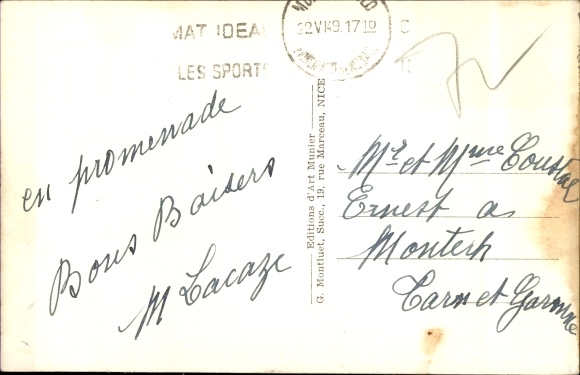 MAT IDEAL
LES SPORTS
22 VI 49. 17 10
en promenade
Bons Baisers
M Lacaze
Editions d'Art Munier
G. Montluet, Succ., 19, rue Marceau, NICE
Mr et Mme Coustal
Ernest a
Montech
Tarn et Garonne